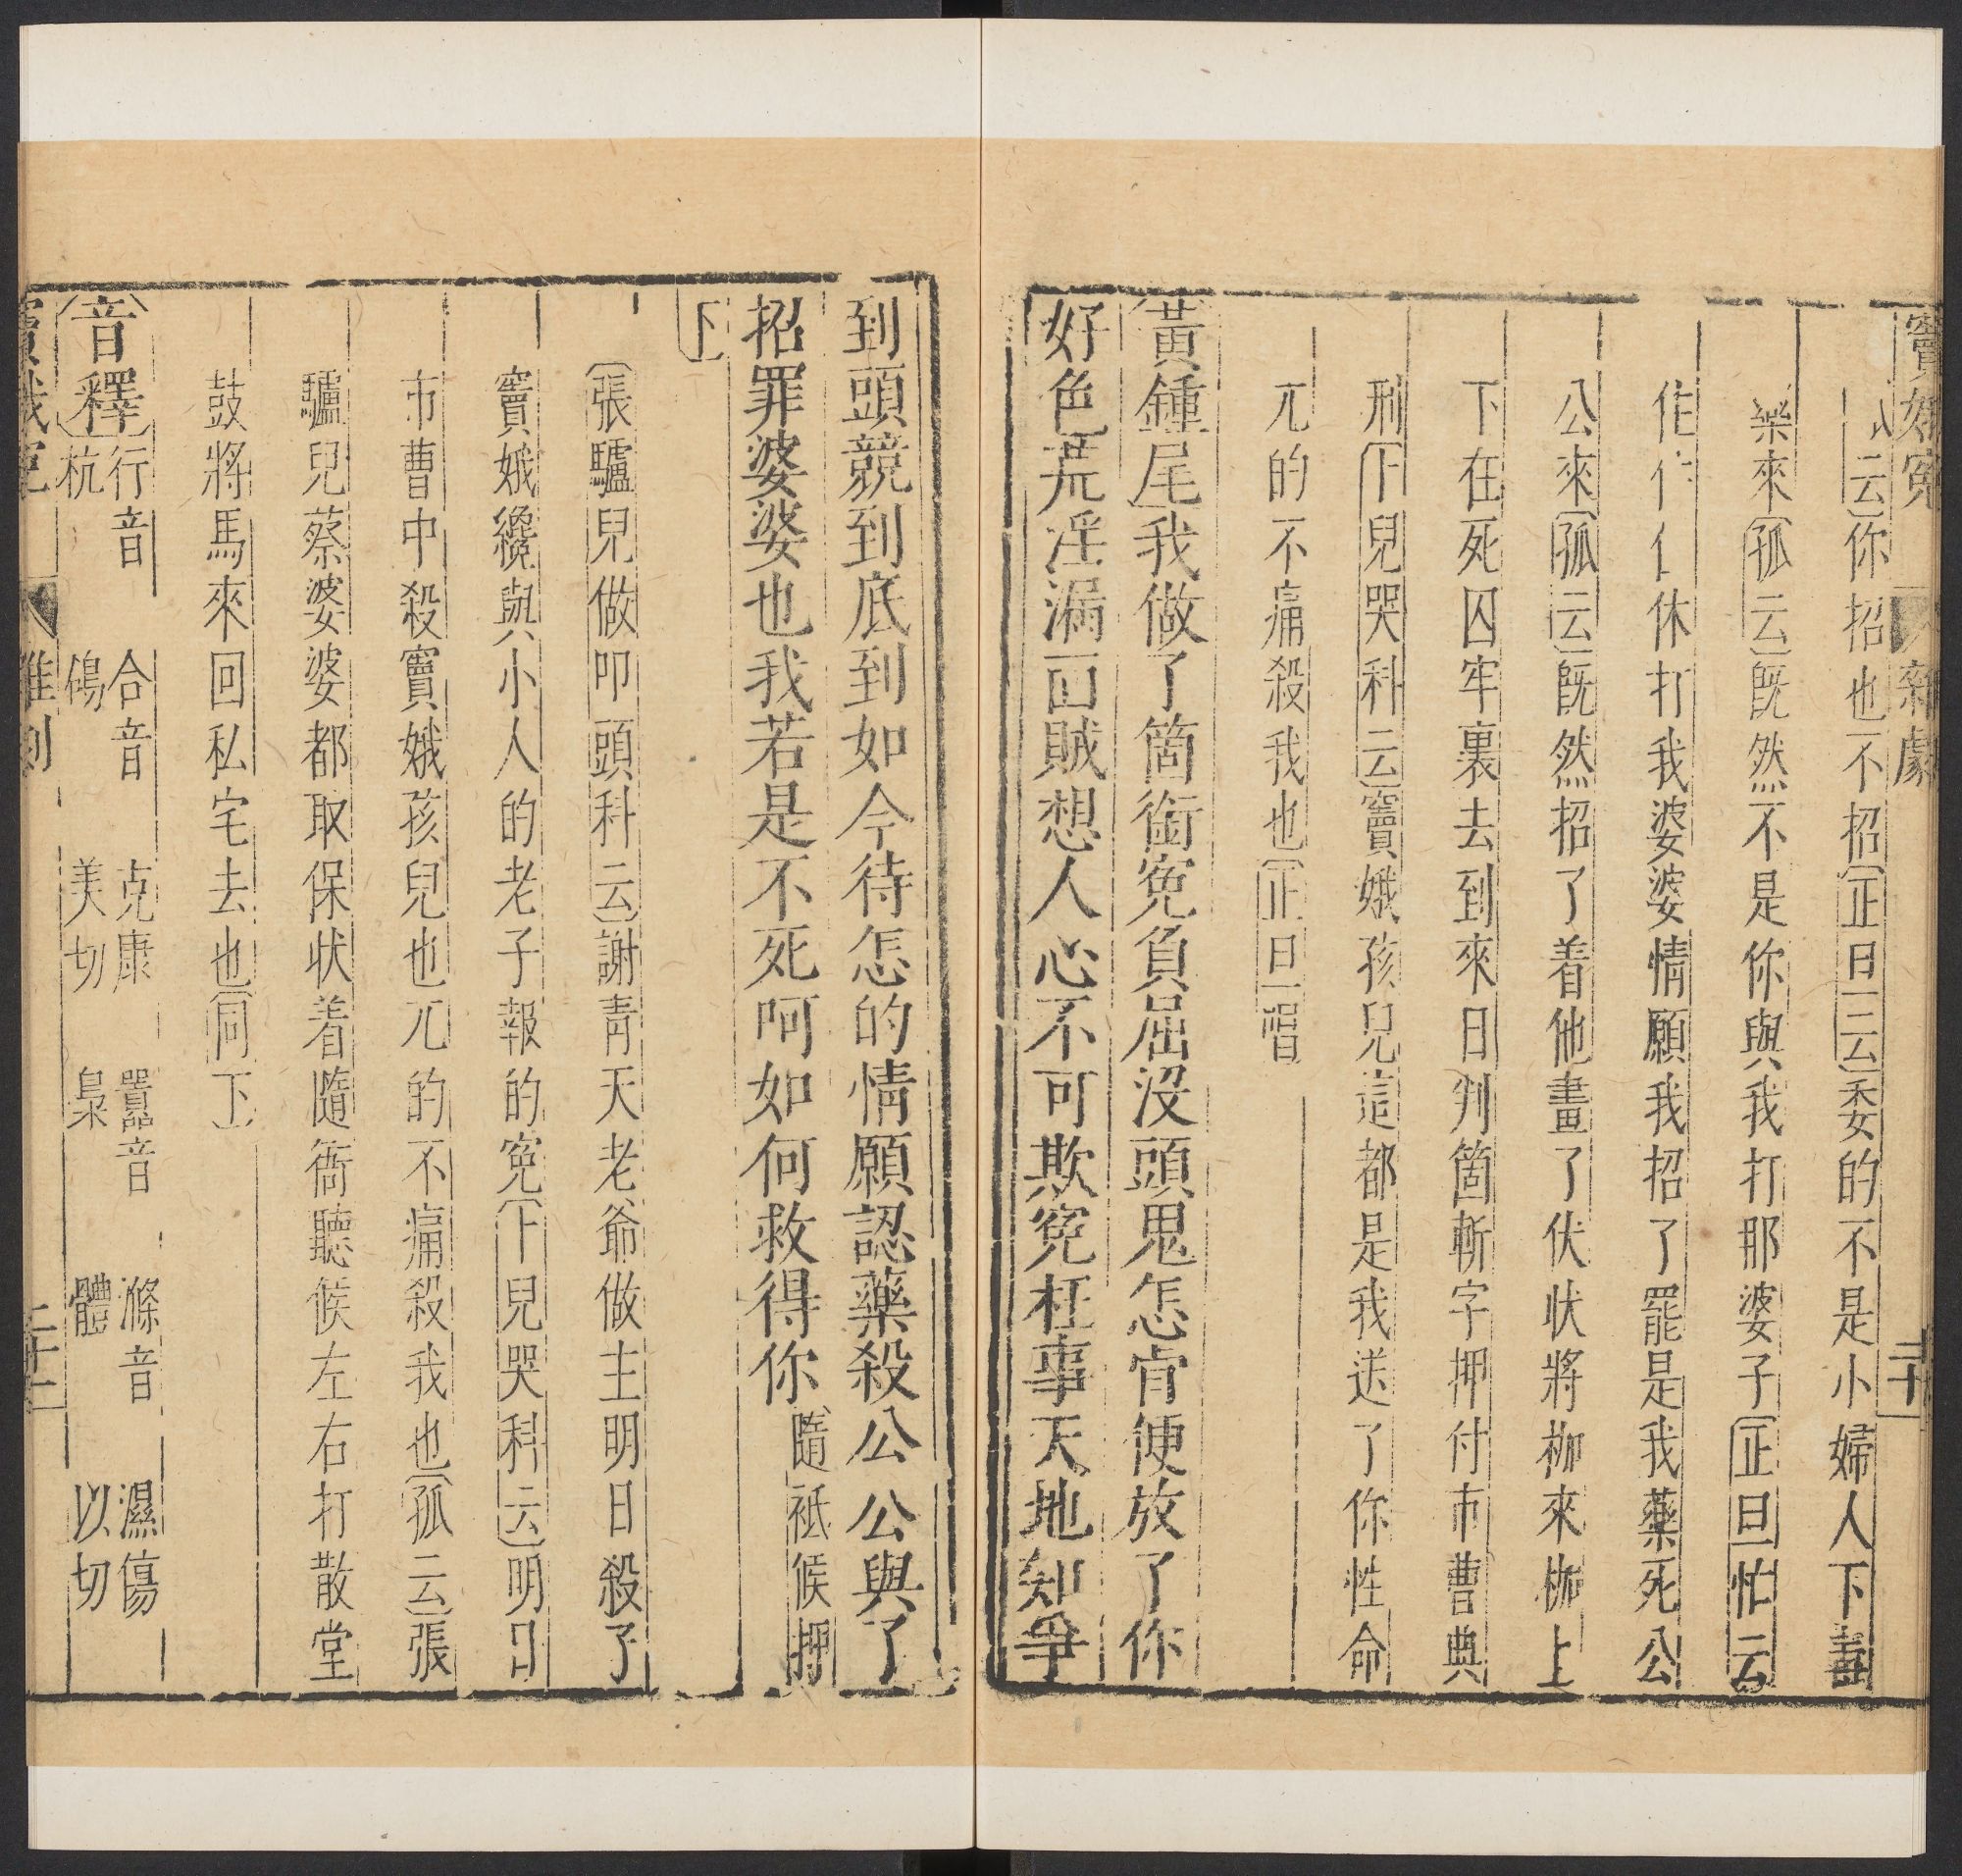 竇娥寃 雜劇 二十
云你招也不招正旦云委的不是小婦人下毒
藥來孤云旣然不是你與我打那婆子正旦忙云
住住住休打我婆婆情願我招了罷是我藥死公
公來孤云旣然招了着他畫了伏狀將枷來枷上
下在死囚牢裏去到來日判箇斬字押付市曹典
刑卜兒哭科云竇娥孩兒這都是我送了你性命
兀的不痛殺我也正旦唱
黃鍾尾我做了箇銜寃負屈沒頭鬼怎肯便放了你
好色荒淫漏面賊想人心不可欺寃枉事天地知爭
到頭競到底到如今待怎的情願認藥殺公公與了
招罪婆婆也我若是不死呵如何救得你隨祗候押
下
張驢兒做叩頭科云謝靑天老爺做主明日殺了
竇娥纔與小人的老子報的寃卜兒哭科云明日
市曹中殺竇娥孩兒也兀的不痛殺我也孤云張
驢兒蔡婆婆都取保狀着隨衙聽候左右打散堂
鼓將馬來回私宅去也同下
音釋 行音杭 合音鴿 克康美切 嚚音梟 滌音體 濕傷以切
竇娥寃 雜劇 二十一